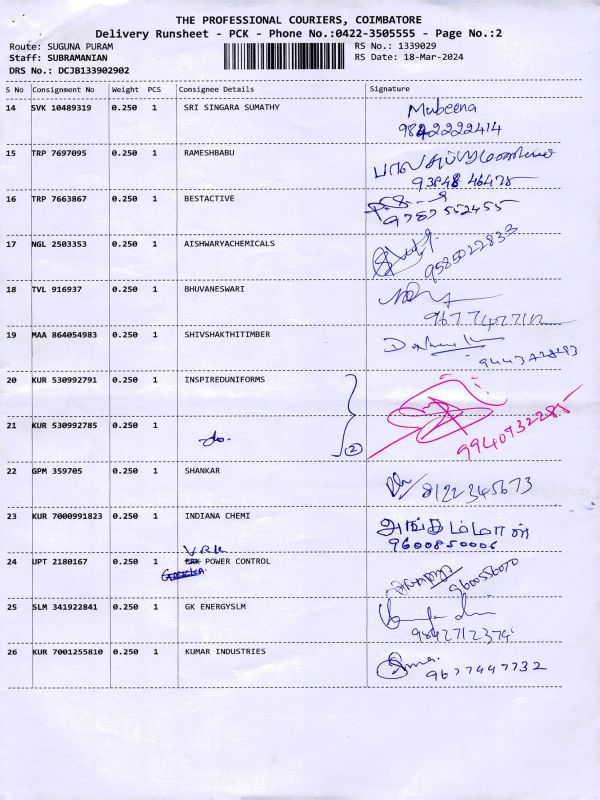 THE PROFESSIONAL COURIERS, COIMBATORE
Delivery Runsheet - PCK - Phone No.:0422-3505555 - Page No.:2
Route: SUGUNA PURAM
RS No.: 1339029
Staff: SUBRAMANIAN
RS Date: 18-Mar-2024
DRS No.: DCJB133902902
S No Consignment No Weight PCS Consignee Details Signature
14 SVK 10489319 0.250 1 SRI SINGARA SUMATHY Mubeena
9842222414
15 TRP 7697095 0.250 1 RAMESHBABU
16 TRP 7663867 0.250 1 BESTACTIVE
9787552455
17 NGL 2503353 0.250 1 AISHWARYACHEMICALS
9585022833
18 TVL 916937 0.250 1 BHUVANESWARI
19 MAA 864054983 0.250 1 SHIVSHAKTHITIMBER
20 KUR 530992791 0.250 1 INSPIREDUNIFORMS
21 KUR 530992785 0.250 1 do. 2
9940732285
22 GPM 359705 0.250 1 SHANKAR 8122345673
23 KUR 7000991823 0.250 1 INDIANA CHEMI
9600850006
VRK
24 UPT 2180167 0.250 1 POWER CONTROL 9600556070
25 SLM 341922841 0.250 1 GK ENERGYSLM
26 KUR 7001255810 0.250 1 KUMAR INDUSTRIES
9677447732